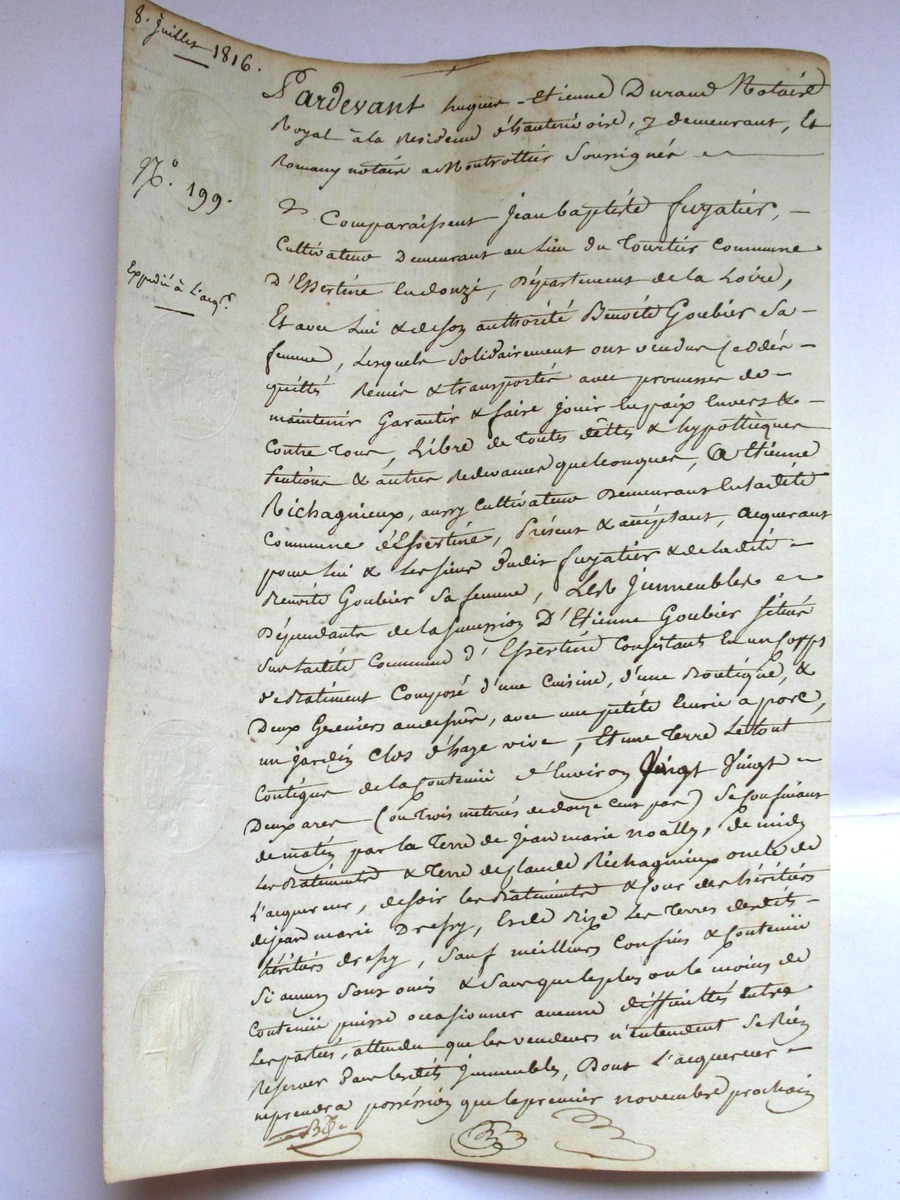 8. Juillet 1816.
N.o 199.
Expedié à L'acq.r
Pardevant hugues-Etienne Durand Notaire
Royal à la Residence d'hauterivoire, y demeurant, Et
Romany notaire a Montrottier Soussignés
Comparaissent Jean baptiste fuyatier,
Cultivateur Demeurant au Lieu du Tourtier Commune
D'Essertine en donzi, Département de la Loire,
Et avec Lui & de son authorité Benoite Goubier Sa
femme, Lesquels Solidairement ont vendus, ceddés
quittés Remis & transportés avec promesse de
maintenir Garantir & faire Jouir en paix Envers &
Contre Tous, Libre de Toutes dettes & hypothèques
Pentions & autres Redevances quelconques, A Etienne
Richagnieux, aussy Cultivateur Demeurant En ladite
Commune d'Essertine, Présent & acceptant, acquerant
pour Lui & Les siens Dudit fuyatier & de la dite
Benoite Goubier Sa femme, Les Immeubles
Dépendants de la Succession D'Etienne Goubier Situés
Sur ladite Commune d'Essertine Consistant En un Corps
de Batiment Composé d'une Cuisine, d'une Boutique, &
Deux Greniers audessus, avec une petite Ecurie a porc,
un Jardin Clos d'haye vive, Et une Terre Le tout
Contigue de la Contenue d'Environ Vingt Vingt
Deux ares (ou Trois metrés de douze Cent pas) Se Confinant
de matin par la Terre de Jean marie noally, de midy
Les Batiments & Terre de Claude Richagnieux oncle de
L'acquereur, de soir Les Batiments & Cour des héritiers
de Jean marie Dressy, Et de Bize Les Terres desdits
héritiers dressy, Sauf meilliurs Confins & Contenue
Si aucuns Sont omis & Sans que le plus ou le moins de
Contenue puisse occasionner aucune difficultés Entre
Les parties, attendu que les vendeurs n'entendent Se Rien
Reserver Dans lesdits Immeubles, Dont L'acquereur
ne prendra possession que le premier novembre prochain